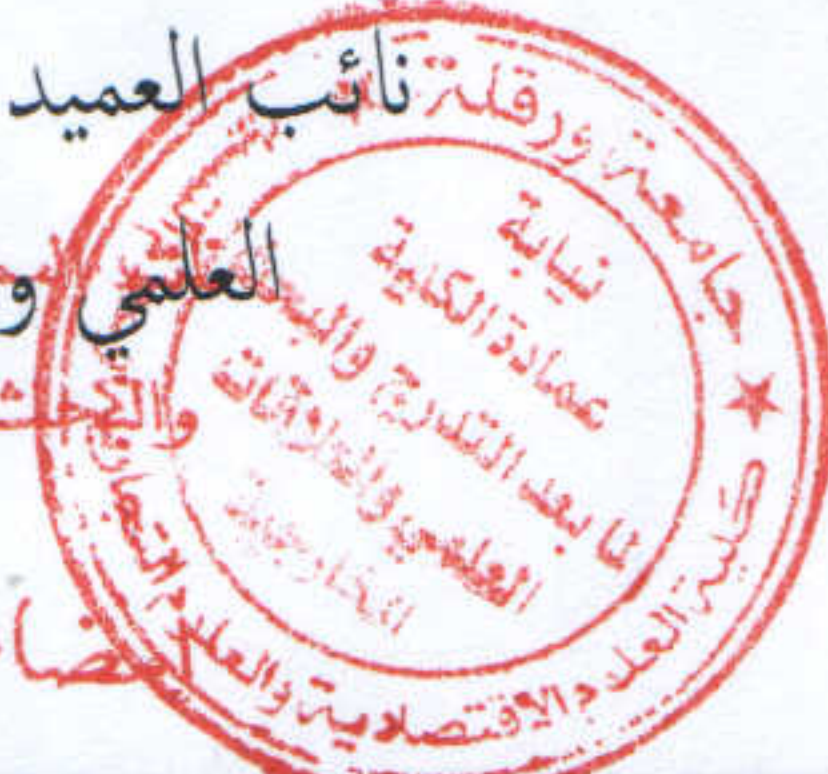 نائب العميد
العلمي و
والبحث
إمضا
جامعة ورقلة
كلية العلوم الاقتصادية والعلوم التجار
نيابة
عمادة الكلية
لما بعد التدرج والبحث
العلمي والعلاقات
الخارجية